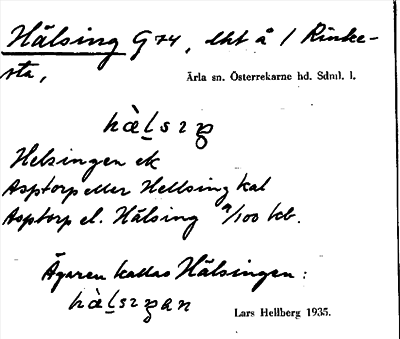 Hälsing G 74, lht å / Rinke-
sta,
Ärla sn. Österrekarne hd. Sdml. l.
hàl̠sɪŋ
Helsingen ek
Asptorp eller Hellsing kal
Asptorp el. Hälsing 9/100 kb.
Ägaren kallas Hälsingen:
hàl̠sɪŋan
Lars Hellberg 1935.